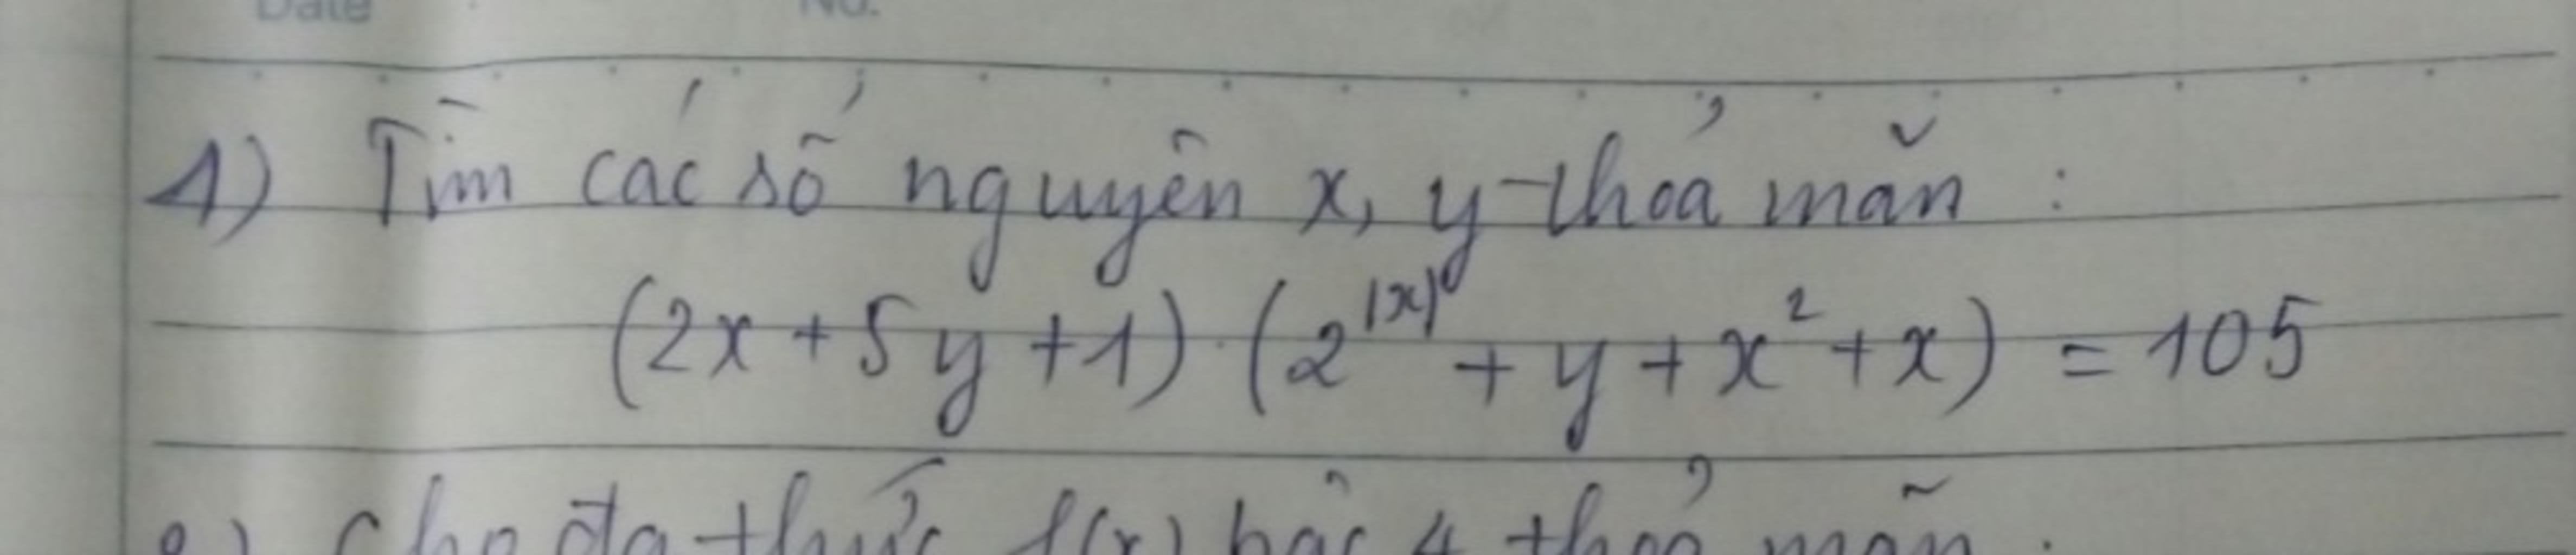 Date No.
1) Tìm các số nguyên x, y thỏa mãn :
(2x + 5y + 1) . (2^|x| + y + x² + x) = 105
2) Cho đa thức f(x) bậc 4 thoả mãn :